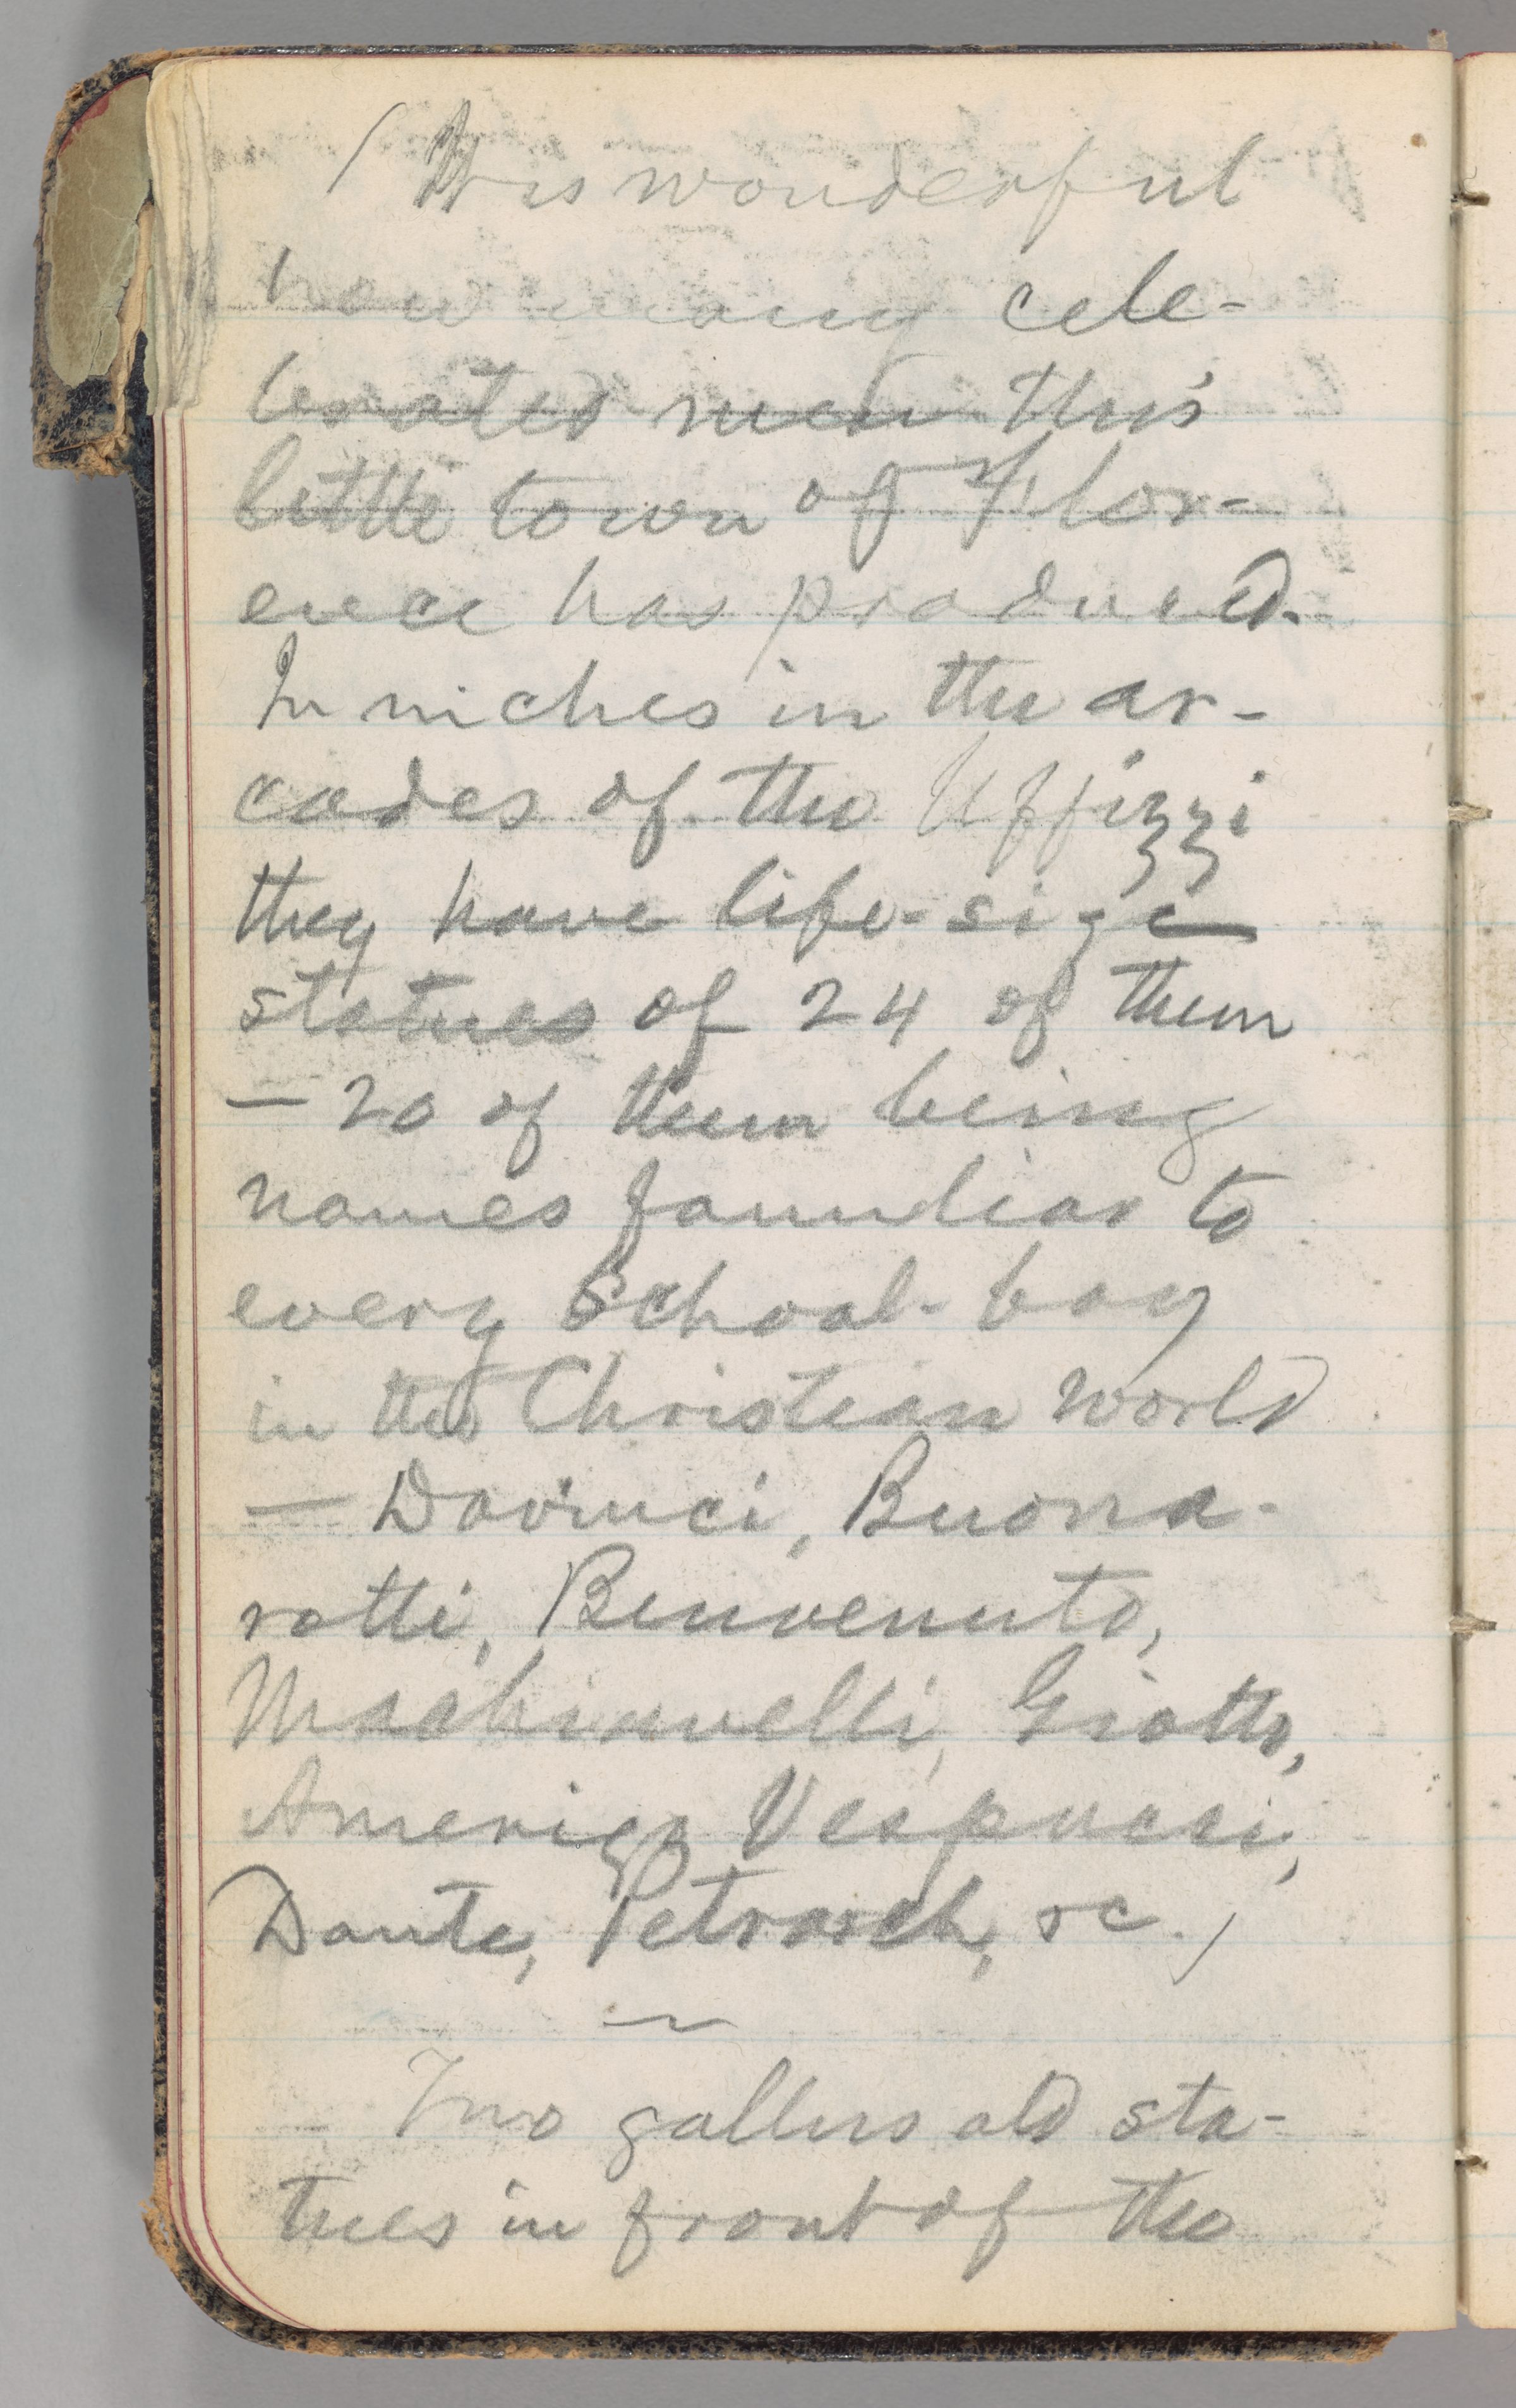 (It is wonderful
how many cele-
brated men this
little town of Flor-
ence has produced.
In niches in the ar-
cades of the Uffizzi
they have life-size
statues of 24 of them
— 20 of them being
names familiar to
every school-boy
in the Christian world
— Davinci, Buona-
rotti, Benvenuto,
Machiavelli, Giotto,
Amerigo Vespucci,
Dante, Petrarch, &c.)
Two gallus old sta-
tues in front of the